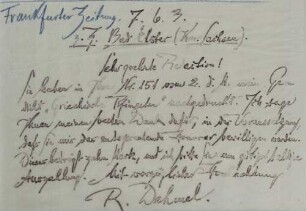 Frankfurter Zeitung. 7. 6. 3.
z. Z. Bad Elster (Kgr. Sachsen).
Sehr geehrte Redaktion!
Sie haben in Ihrer Nr. 151 vom 2. d. M. mein Ge-
dicht „Griechische nachgedruckt. Ich sage
Ihnen meinen besten Dank dafür, in der Voraussetzung
daß Sie mir das entsprechende Honorar bewilligen werden.
Dieses beträgt zehn Mark, und ich bitte Sie um gütige
Auszahlung. Mit vorzüglicher Hochachtung
R. Dehmel.